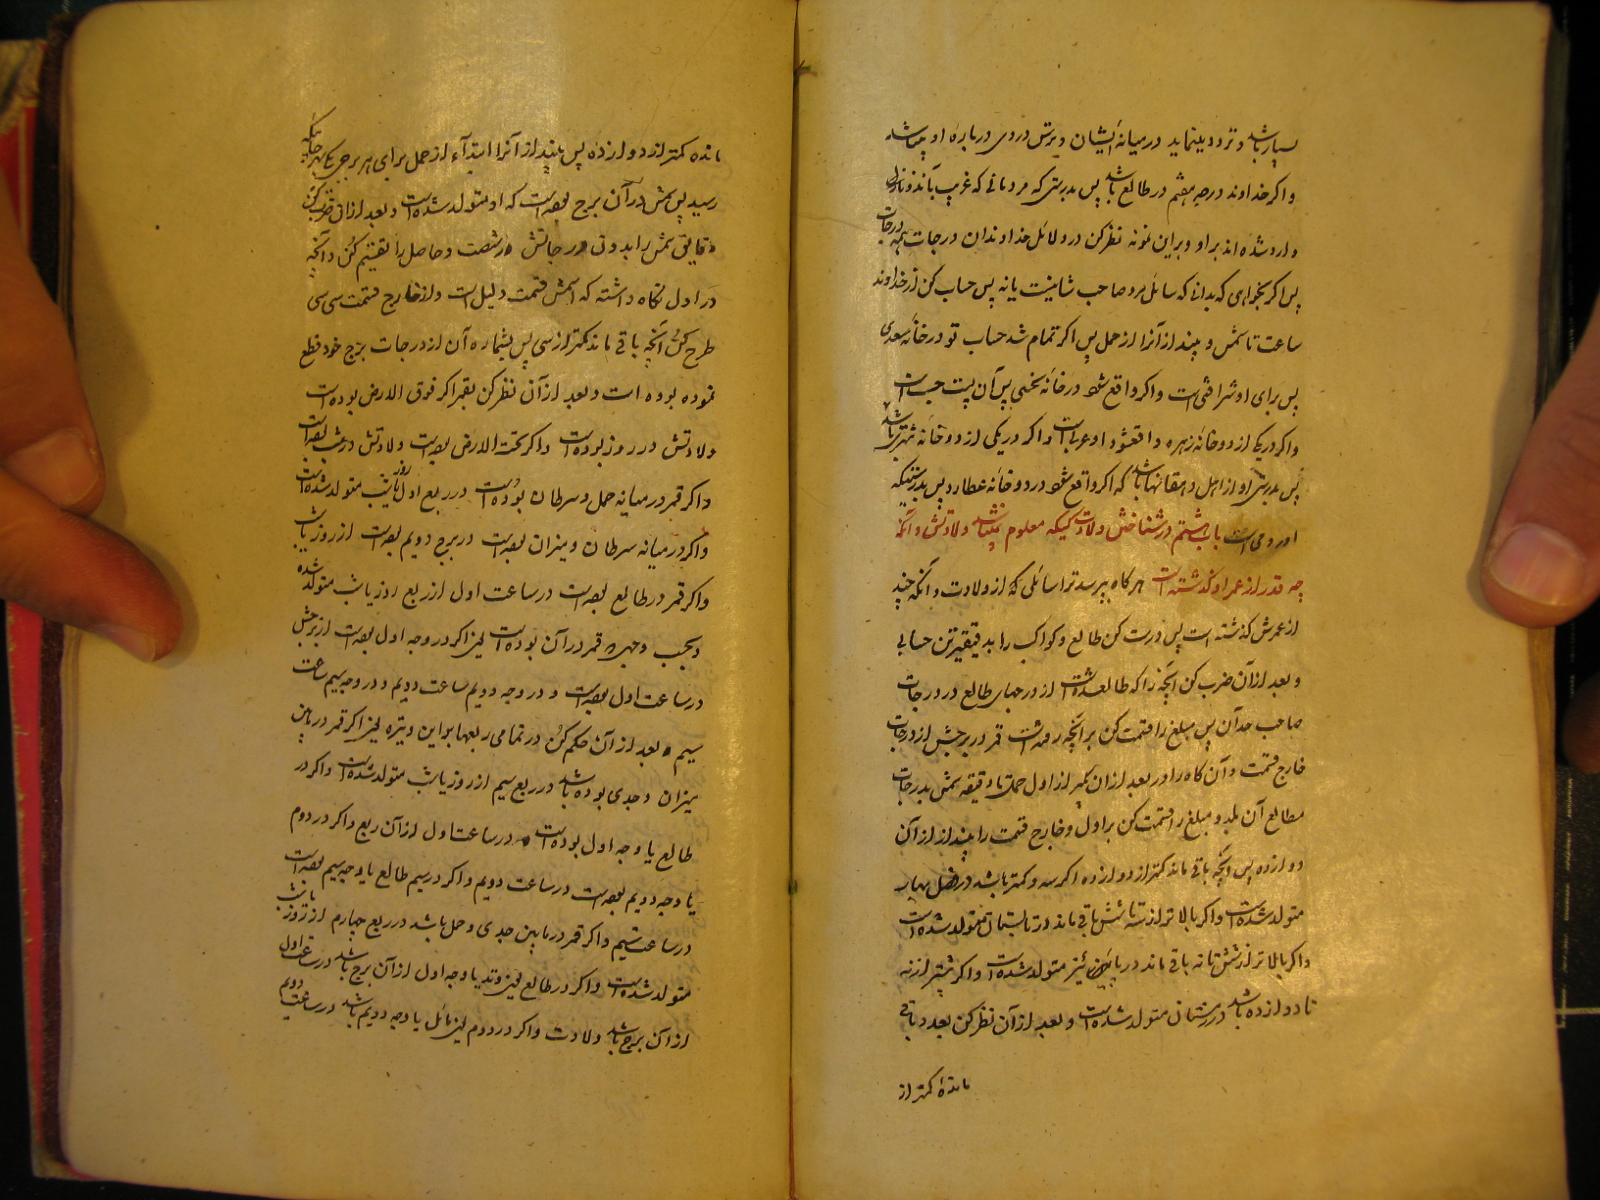 بسیار باشد و تردد مینماید در میانهٔ ایشان و پرسش در وی دربارهٔ او میباشد
و اگر خداوند درجهٔ هفتم در طالع باشد پس بدرستی که مردمانی که غریب باشند و
وارد شده‌اند بر او و بر این نمونه نظر کن در دلائل خداوندان درجات همه درجات
پس اگر بخواهی که بدانی که سائل مرد صاحب شأنیست یا نه پس حساب کن از خداوند
ساعت تا شمس و بینداز آنرا از حمل پس اگر تمام شد حساب تو در خانهٔ سعدی
پس برای او شرافتی است و اگر واقع شود در خانهٔ نحسی پس آن پست حسب است
و اگر در یکی از دو خانهٔ زهره واقع شود او عربی است و اگر در یکی از دو خانهٔ مشتری باشد
پس بدرستی او از اهل دهقانها باشد که اگر واقع شود در دو خانهٔ عطارد پس بدرستیکه
او رومی است باب هشتم در شناختن ولادت کسیکه معلوم نمیباشد ولادتش و آنکه
چه قدر از عمر او گذشته است هرگاه بپرسد ترا سائلی که از ولادت و آنکه چند
از عمرش گذشته است پس درست کن طالع و کواکب را بدقیقترین حسابی
و بعد از آن ضرب کن آنچه را که طالع شده است از درجهای طالع در درجات
صاحب حد آن پس مبلغ را قسمت کن بر آنچه رفته است قمر در برجش از درجات
خارج قسمت و آن نگاه دار و بعد از آن بگیر از اول حمل تا دقیقهٔ شمس بدرجات
مطالع آن بلد و مبلغ را قسمت کن بر اول و خارج قسمت را بینداز از آن
دوازده پس آنچه باقی ماند کمتر از دوازده اگر سه و کمتر باشد در فصل بهار
متولد شده است و اگر بالاتر از سه تا شش باقی ماند در تابستان متولد شده است
و اگر بالاتر از شش تا نه باقی ماند در پائیز متولد شده است و اگر بیشتر از نه
تا دوازده باشد در زمستان متولد شده است و بعد از آن نظر کن بعدد باقی
ماندهٔ کمتر از
مانده کمتر از دوازده پس بینداز آنرا ابتداء از حمل برای هر برجی یکی بهر جا که
رسید پس شمس در آن برج بوده است که او متولد شده است و بعد از آن ضرب کن
دقایق شمس را بدون درجاتش در شصت و حاصل را تقسیم کن و آنچه
در اول نگاه داشته که اسمش قسمت دلیل است و از خارج قسمت سی سی
طرح کن آنچه باقی ماند کمتر از سی پس بشماره آن از درجات برج خود قطع
نموده بوده است و بعد از آن نظر کن بقمر اگر فوق الارض بوده است
ولادتش در روز بوده است و اگر تحت الارض بوده است ولادتش در شب بوده است
و اگر قمر در میانه حمل و سرطان بوده است در ربع اول روز یا شب متولد شده است
و اگر در میانه سرطان و میزان بوده است در ربع دویم بوده است از روز یا شب
و اگر قمر در طالع بوده است در ساعت اول از ربع روز یا شب متولد شده
و بحسب وجهی که قمر در آن بوده است یعنی اگر در وجه اول بوده است از برجش
در ساعت اول بوده است و در وجه دویم ساعت دویم و در وجه سیم ساعت
سیم و بعد از آن حکم کن در تمامی ربعها بر این وتیره یعنی اگر قمر در مابین
میزان و جدی بوده باشد در ربع سیم از روز یا شب متولد شده است و اگر در
طالع یا وجه اول بوده است در ساعت اول از آن ربع و اگر در دوم
یا وجه دویم بوده است در ساعت دویم و اگر در سیم طالع یا وجه سیم بوده است
در ساعت سیم و اگر قمر در مابین جدی و حمل باشد در ربع چهارم از روز یا شب
متولد شده است و اگر در طالع یعنی وتد یا وجه اول از آن برج باشد در ساعت اول
از آن برج باشد ولادت و اگر در دوم یعنی مائل یا وجه دویم باشد در ساعت دویم